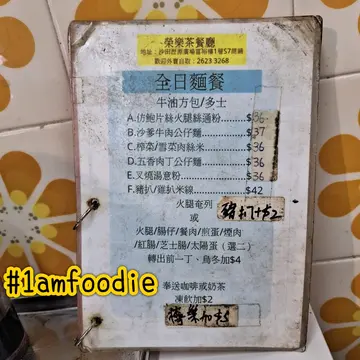 榮樂茶餐廳
歡迎外賣自取：2623 3268
全日麵餐
牛油方包/多士
A.仿鮑片絲火腿絲通粉 $36
B.沙爹牛肉公仔麵 $37
C.榨菜/雪菜肉絲米 $36
D.五香肉丁公仔麵 $36
E.叉燒湯意粉 $36
F.豬扒/雞扒米線 $42
火腿奄列
或
火腿/腸仔/餐肉/煎蛋/煙肉
/紅腸/芝士腸/太陽蛋（選二）
轉出前一丁、烏冬加$4
奉送咖啡或奶茶
凍飲加$2
#1amfoodie